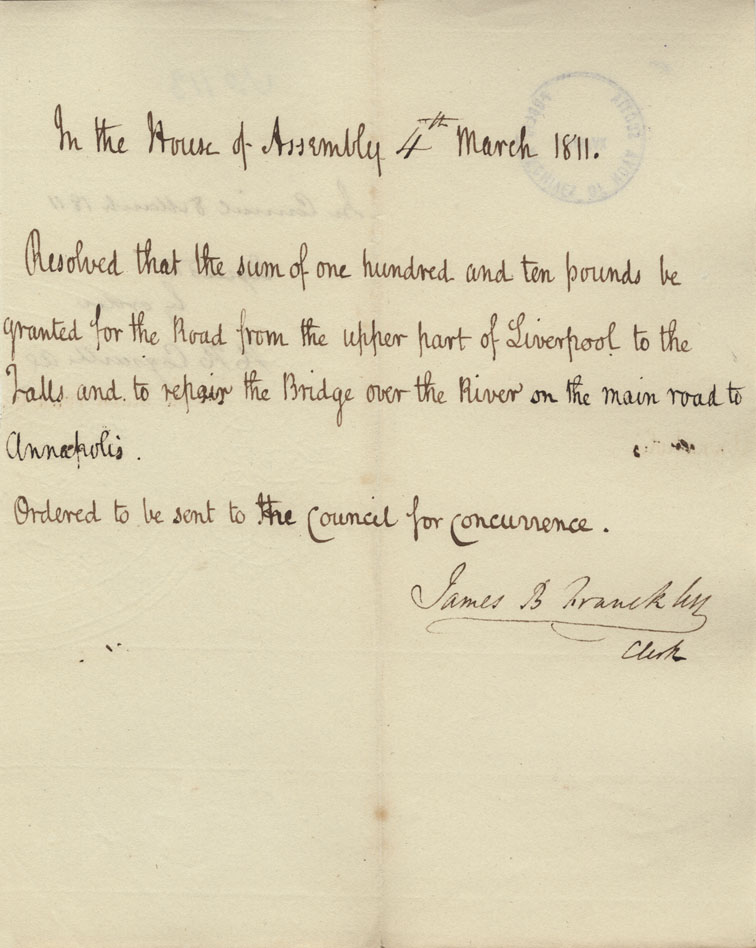 In the House of Assembly 4th March 1811.
Resolved that the sum of one hundred and ten pounds be
granted for the Road from the upper part of Liverpool to the
Falls and to repair the Bridge over the River on the main road to
Annapolis.
Ordered to be sent to the Council for concurrence.
James B Franck
Clerk